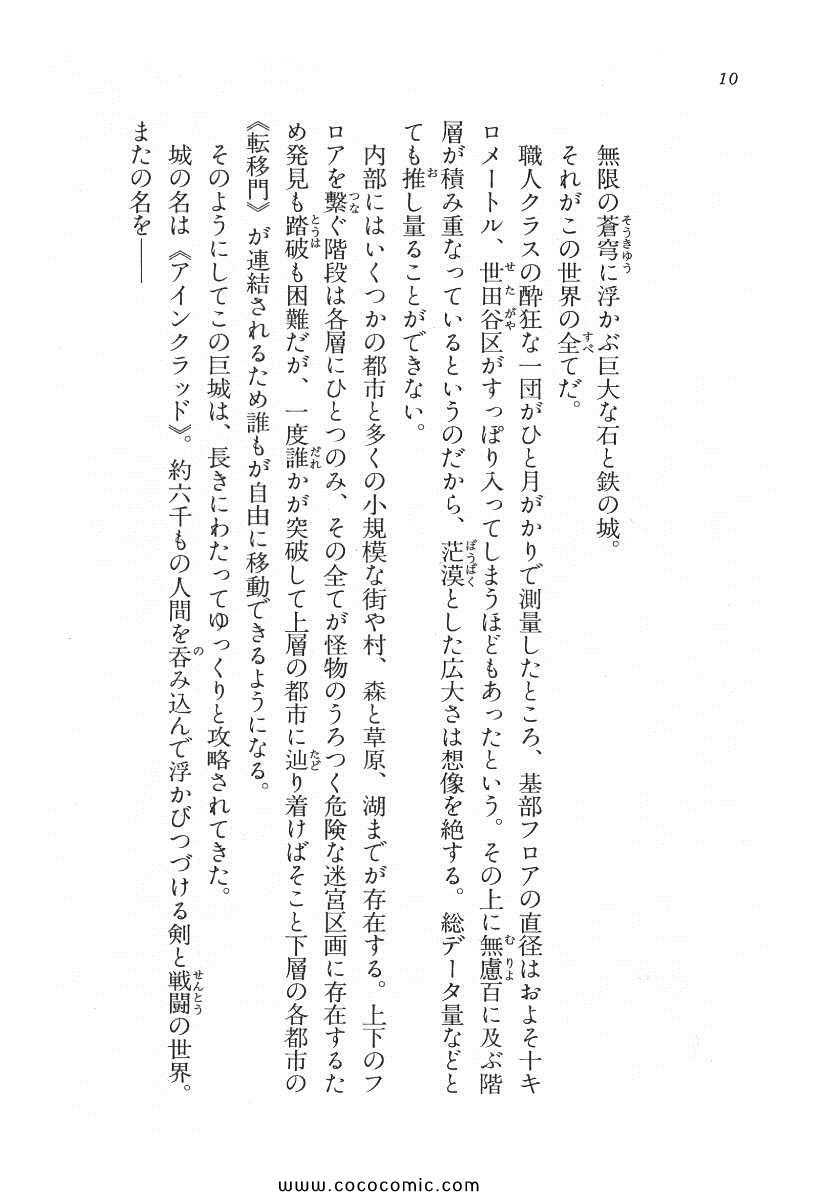 10
無限の蒼穹に浮かぶ巨大な石と鉄の城。
それがこの世界の全てだ。
職人クラスの酔狂な一団がひと月がかりで測量したところ、基部フロアの直径はおよそ十キ
ロメートル、世田谷区がすっぽり入ってしまうほどもあったという。その上に無慮百に及ぶ階
層が積み重なっているというのだから、茫漠とした広大さは想像を絶する。総データ量などと
ても推し量ることができない。
内部にはいくつかの都市と多くの小規模な街や村、森と草原、湖までが存在する。上下のフ
ロアを繋ぐ階段は各層にひとつのみ、その全てが怪物のうろつく危険な迷宮区画に存在するた
め発見も踏破も困難だが、一度誰かが突破して上層の都市に辿り着けばそこと下層の各都市の
《転移門》が連結されるため誰もが自由に移動できるようになる。
そのようにしてこの巨城は、長きにわたってゆっくりと攻略されてきた。
城の名は《アインクラッド》。約六千もの人間を呑み込んで浮かびつづける剣と戦闘の世界。
またの名を——
www.cococomic.com